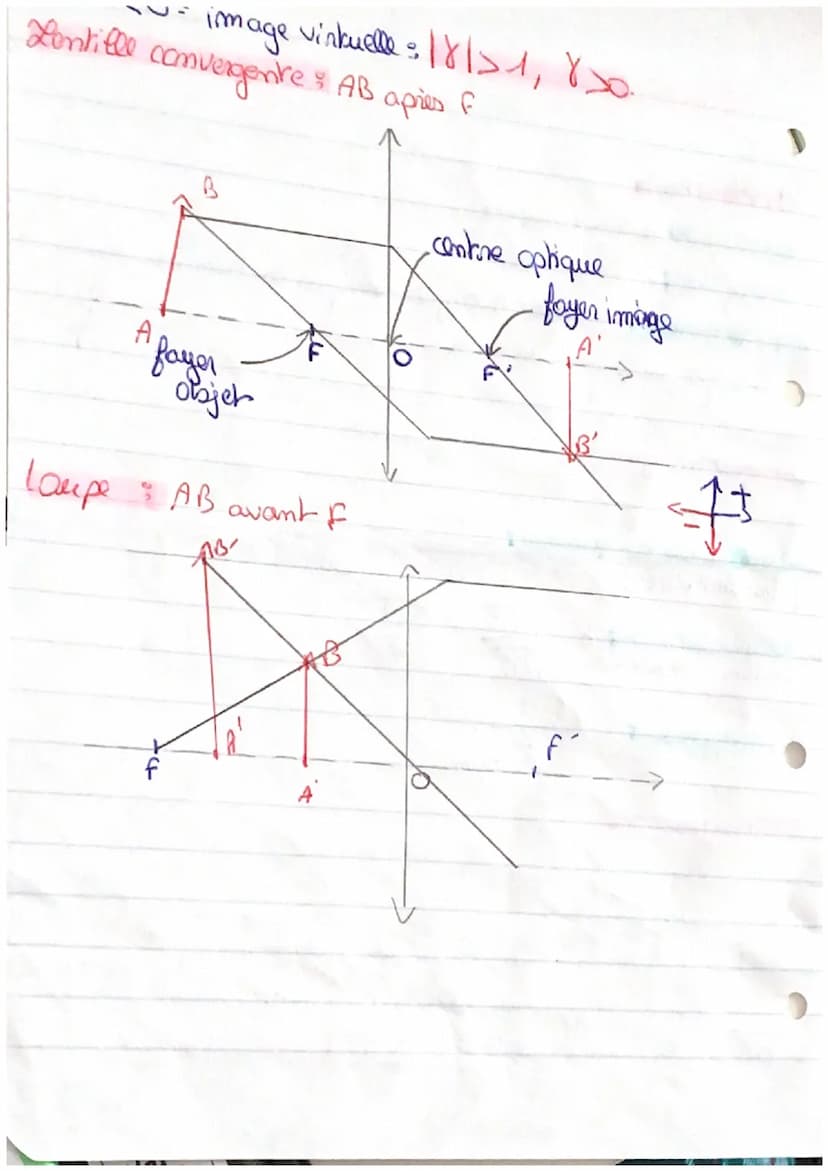 = image virtuelle : |γ|>1, γ>0.
Lentille convergente : AB après F
B
centre optique
foyer image
A
F
O
F'
A'
foyer
objet
B'
Loupe : AB avant F
+
-
B'
B
A'
F'
F
A
O